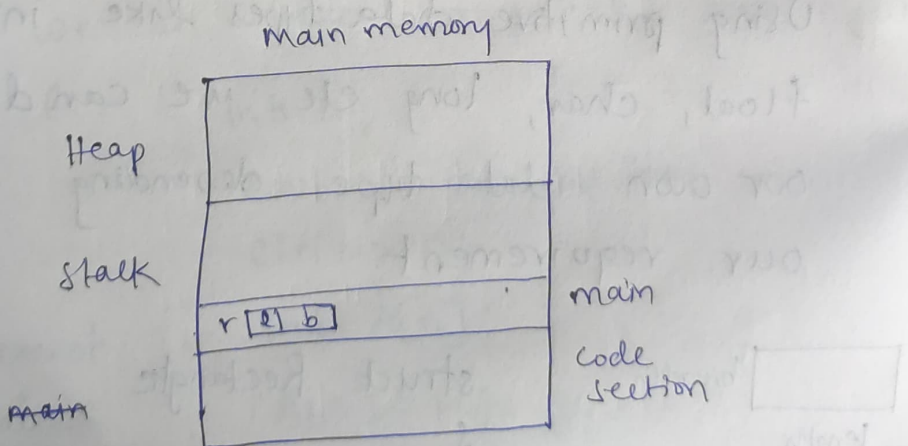 main memory
Heap
stack
main
r l b
code
section
main